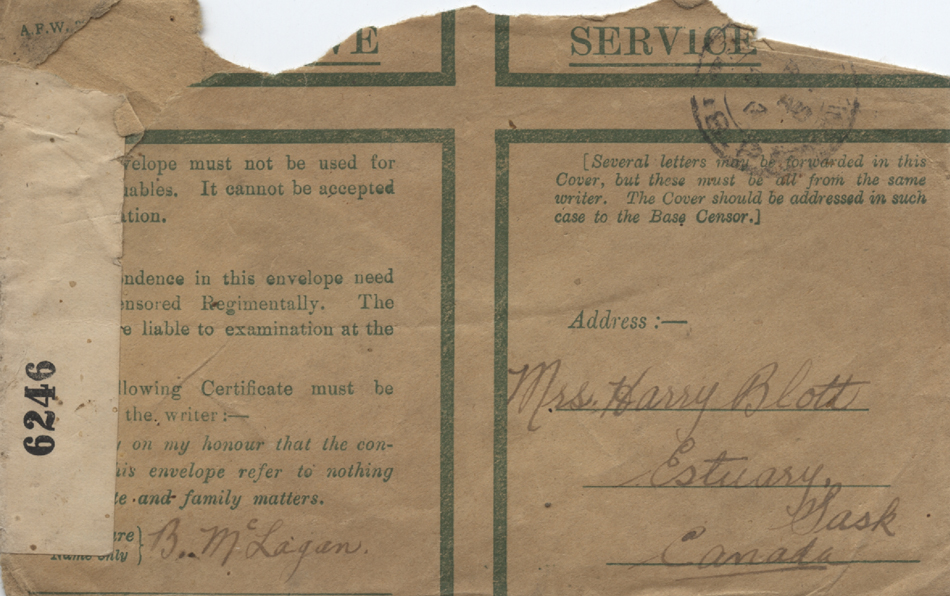 A.F.W.
SERVICE
must not be used for
It cannot be accepted
in this envelope need
Regimentally. The
liable to examination at the
Certificate must be
the writer :—
on my honour that the con-
envelope refer to nothing
and family matters.
Name only } B. McLagan.
6246
[Several letters may be forwarded in this
Cover, but these must be all from the same
writer. The Cover should be addressed in such
case to the Base Censor.]
Address :—
Mrs. Harry Blott
Estuary,
Sask
Canada